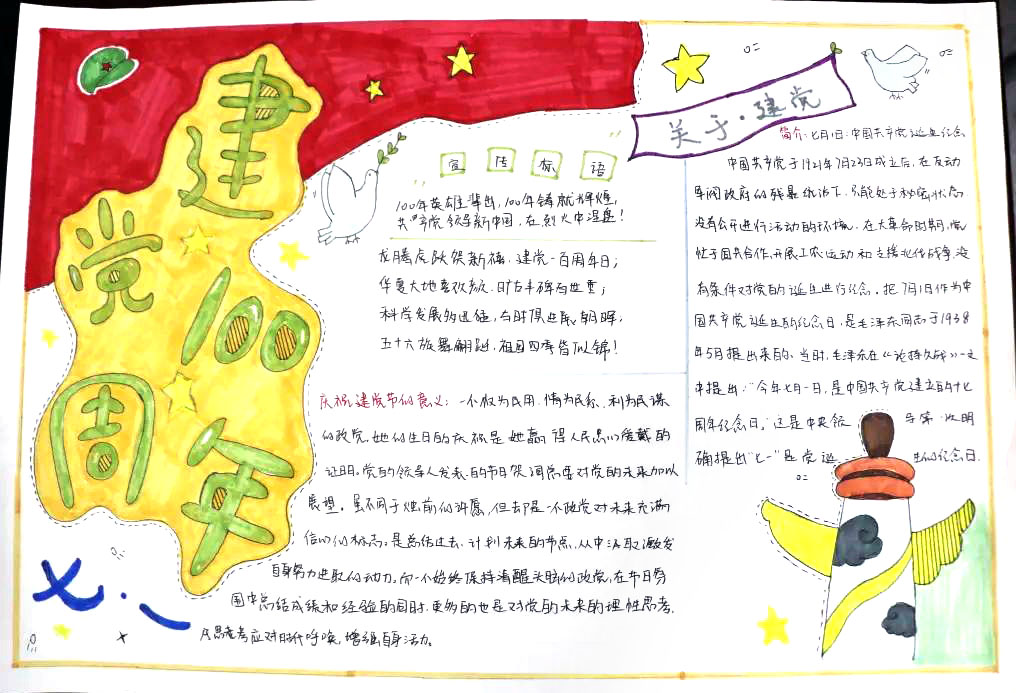 建党100周年
七·一
宣传标语
100年英雄辈出,100年铸就辉煌,
共产党领导新中国,在烈火中涅槃!
龙腾虎跃贺新禧,建党一百周年日;
华夏大地喜欢放,旷古丰碑万世重;
科学发展的进程,与时俱进展朝晖,
五十六族舞翩跹,祖国四季皆似锦!
庆祝建党节的意义:一个权为民用、情为民系、利为民谋
的政党,她的生日的庆祝是她赢得人民衷心爱戴的
证明。党的领导人发表的节日祝词总要对党的未来加以
展望。虽不同于烛前的许愿,但却是一个政党对未来充满
信心的标志。是总结过去、计划未来的节点,从中汲取激发
自身努力进取的动力。而一个始终保持清醒头脑的政党,在节日氛
围中总结成绩和经验的同时,更多的也是对党的未来的理性思考,
从思考考应对时代呼唤,增强自身活力。
关于·建党
简介:七月1日:中国共产党诞生纪念
中国共产党于1921年7月23日成立后,在反动
军阀政府的残暴统治下,只能处于秘密状态,
没有公开进行活动的环境。在大革命时期,党
忙于国共合作、开展工农运动和支援北伐战争,没
有条件对党的诞生进行纪念。把7月1日作为中
国共产党诞生的纪念日,是毛泽东同志于1938
年5月提出来的。当时,毛泽东在《论持久战》一文
中提出:"今年七月一日,是中国共产党建立的十七
周年纪念日。"这是中央领导第一次明
确提出"七一"是党诞生的纪念日.